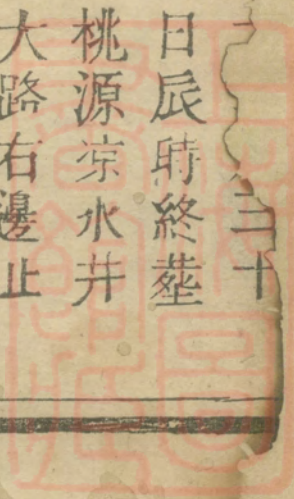 三十
日辰時終塟
桃源凉水井
大路右邊止